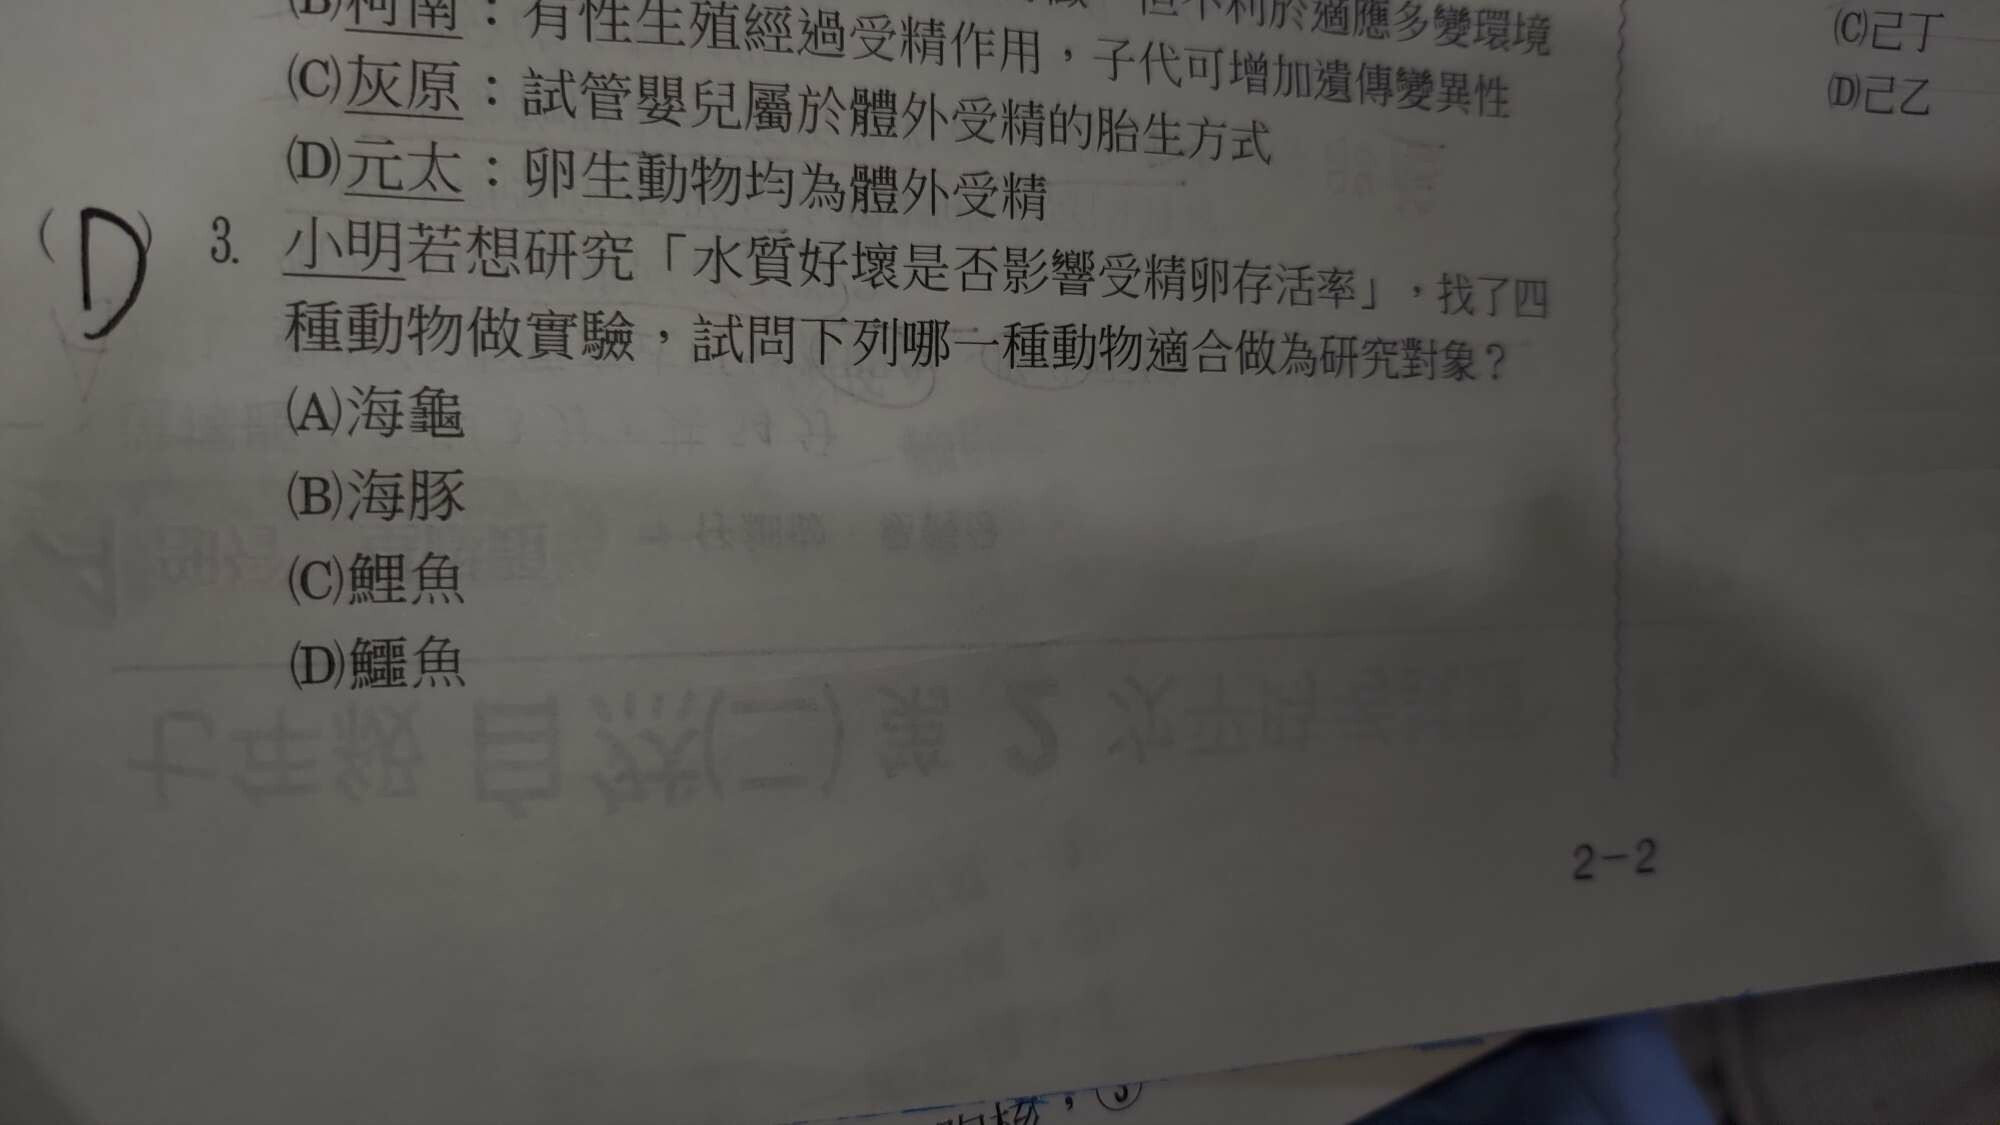 (B)柯南：有性生殖經過受精作用，子代可增加遺傳變異性
但不利於適應多變環境
(C)灰原：試管嬰兒屬於體外受精的胎生方式
(D)元太：卵生動物均為體外受精
(D) 3. 小明若想研究「水質好壞是否影響受精卵存活率」，找了四
種動物做實驗，試問下列哪一種動物適合做為研究對象？
(A)海龜
(B)海豚
(C)鯉魚
(D)鱷魚
2－2
(C)己丁
(D)己乙